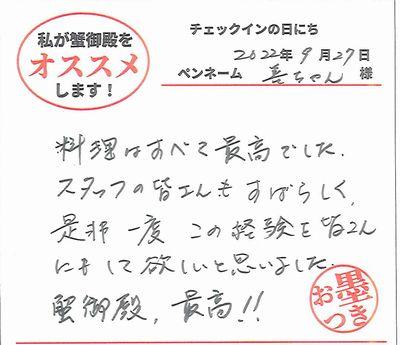 私が蟹御殿を
オススメ
します!
チェックインの日にち
2022年9月27日
ペンネーム 善ちゃん 様
料理はすべて最高でした.
スタッフの皆さんもすばらしく,
是非一度この経験を皆さん
にもして欲しいと思いました.
蟹御殿,最高!!
お墨つき